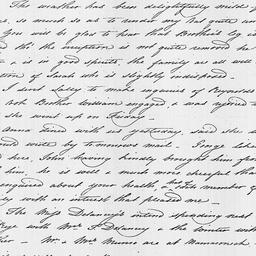 The weather has been delightfully mild
so much so as to render my hat quite
You will be glad to hear that Brother's leg is
tho' the irruption is not quite removed he
& is in good spirits, the family are all well
tion of Sarah who is slightly indisposed -
I sent Sally to make inquiries of Reynolds
Brother William engaged & was rejoiced to
she went up on Friday -
Anna dined with us yesterday, said she
would write by tomorrows mail -
here, John having kindly brought him
him, he is well & much more cheerful than
enquired about your health, & that member of
ly with an interest that pleased me -
The Miss Delancey's intend spending next
with Mrs. F Delancey & the winter with
her - Mr. & Mrs. Munro are at Mamaroneck